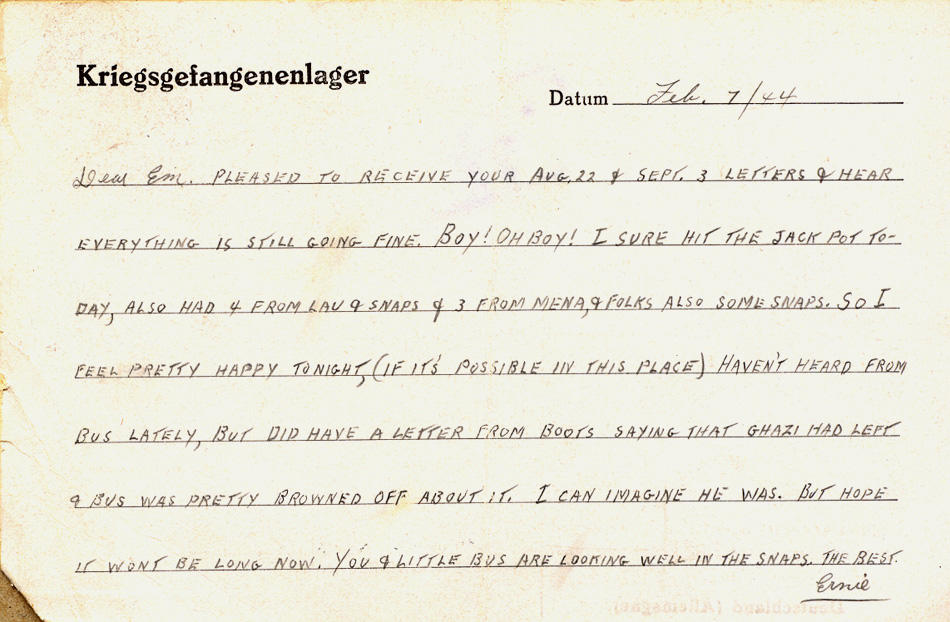 Kriegsgefangenenlager
Datum Feb. 7/44
Dear Em. PLEASED TO RECEIVE YOUR AUG. 22 & SEPT. 3 LETTERS & HEAR
EVERYTHING IS STILL GOING FINE. BOY! OH BOY! I SURE HIT THE JACK POT TO-
DAY, ALSO HAD 4 FROM LAU & SNAPS & 3 FROM MENA, & FOLKS ALSO SOME SNAPS. SO I
FEEL PRETTY HAPPY TONIGHT, (IF IT'S POSSIBLE IN THIS PLACE) HAVEN'T HEARD FROM
BUS LATELY, BUT DID HAVE A LETTER FROM BOOTS SAYING THAT GHAZI HAD LEFT
& BUS WAS PRETTY BROWNED OFF ABOUT IT. I CAN IMAGINE HE WAS. BUT HOPE
IT WONT BE LONG NOW. YOU & LITTLE BUS ARE LOOKING WELL IN THE SNAPS. THE BEST.
Ernie
Deutschland (Allemagne)